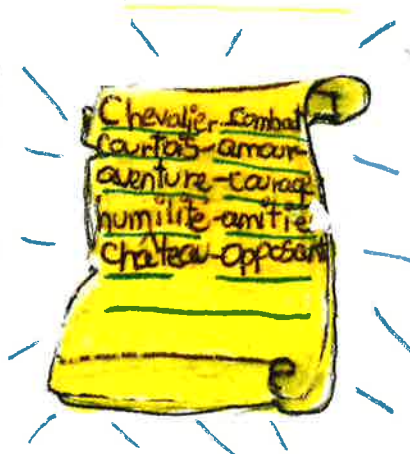 Chevalier-combat
courtois-amour-
aventure-courage
humilité-amitié
château-opposant